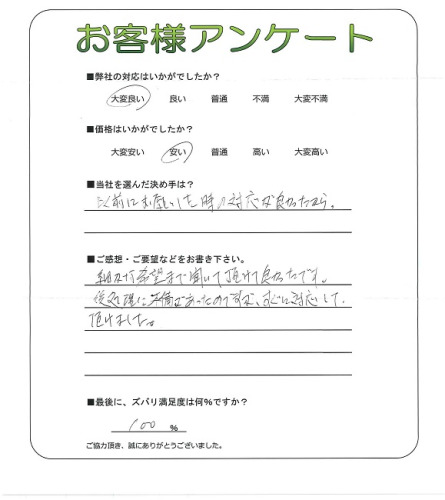 お客様アンケート
■弊社の対応はいかがでしたか？
大変良い 良い 普通 不満 大変不満
■価格はいかがでしたか？
大変安い 安い 普通 高い 大変高い
■当社を選んだ決め手は？
以前にお願いした時の対応が良かったから。
■ご感想・ご要望などをお書き下さい。
細かい希望まで聞いて頂けて良かったです。
後処理に不備があったのですが、すぐに対応して
頂けました。
■最後に、ズバリ満足度は何％ですか？
100 ％
ご協力頂き、誠にありがとうございました。